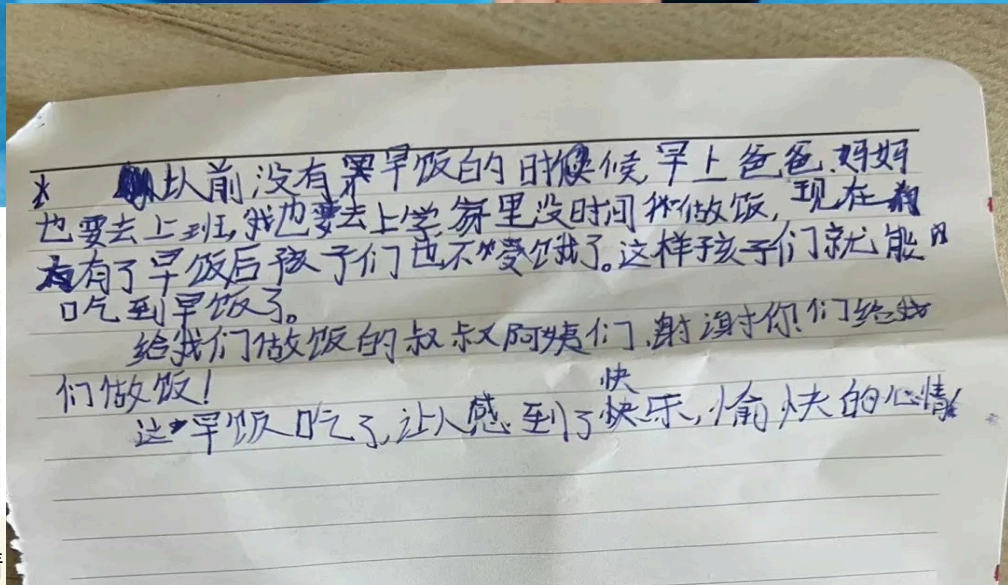 以前没有早饭的时候早上爸爸.妈妈
也要去上班,我也要去上学家里没时间做饭,现在
有了早饭后孩子们也不受饿了。这样孩子们就能
吃到早饭了。
给我们做饭的叔叔阿姨们,谢谢你们给我
们做饭!
快
这早饭吃了,让人感到了快乐,愉快的心情